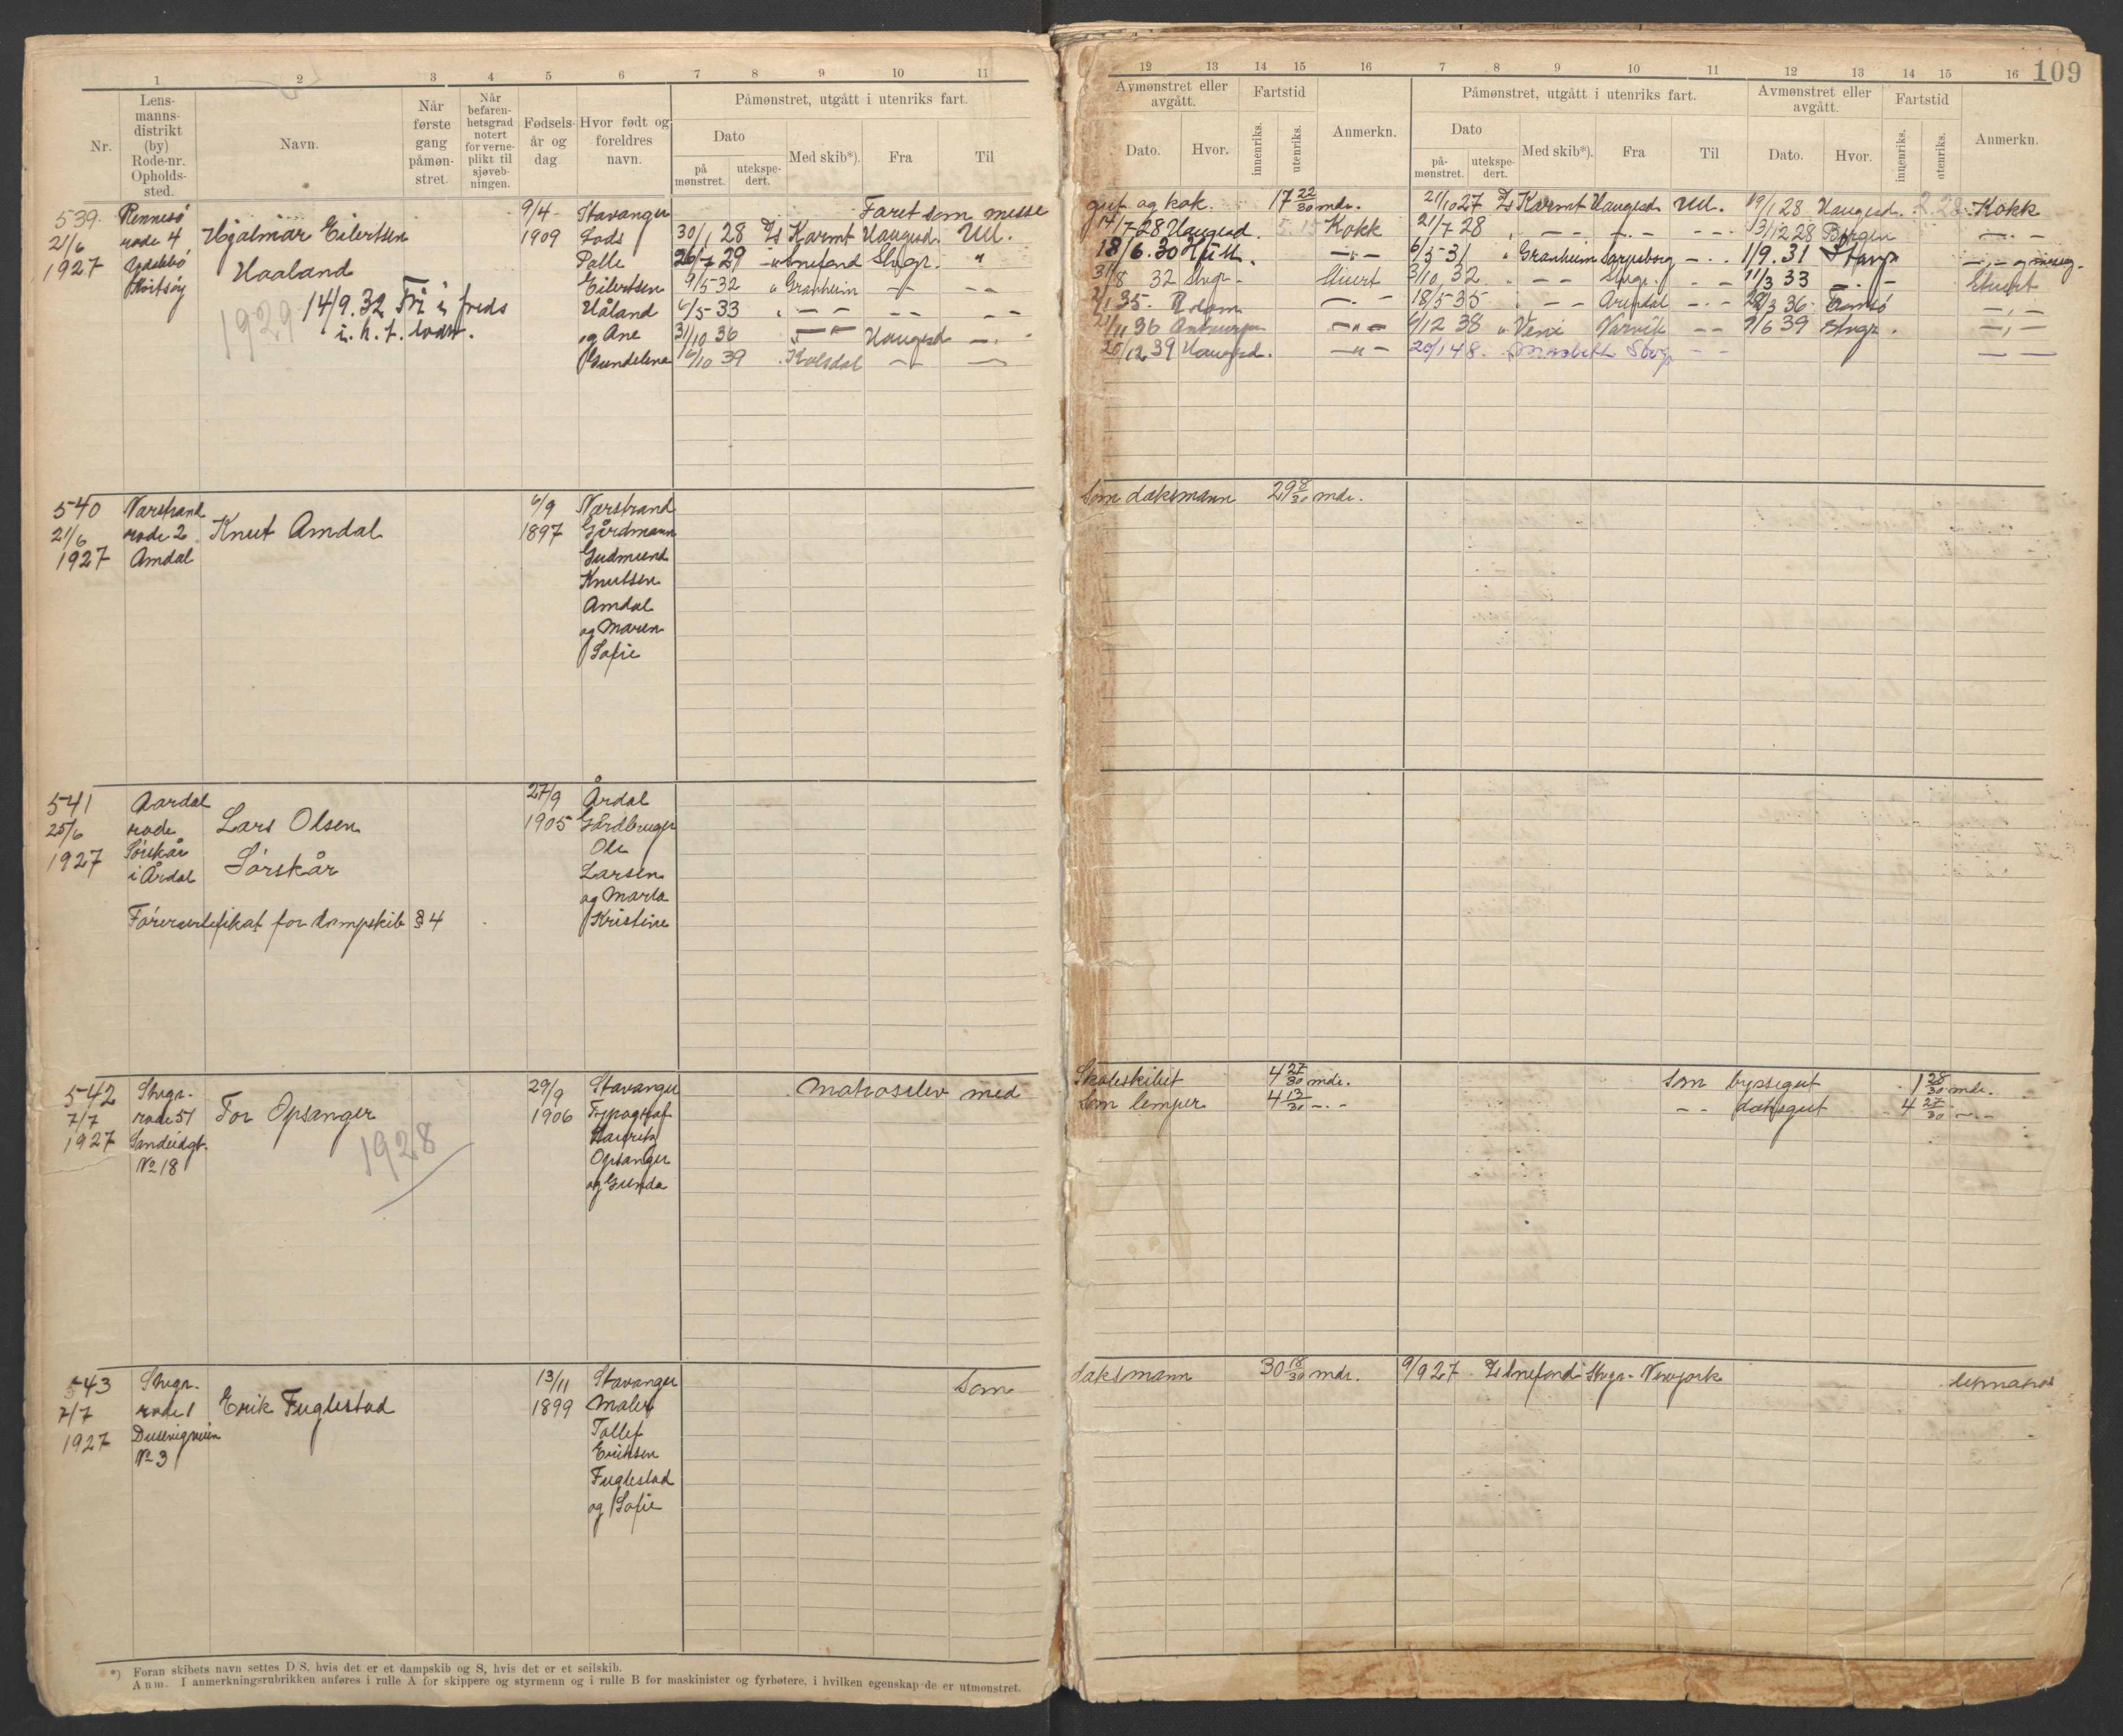 109
1 2 3 4 5 6 7 8 9 10 11
12 13 14 15 16 7 8 9 10 11 12 13 14 15 16
Nr.
Lens-
manns-
distrikt
(by)
Rode-nr.
Opholds-
sted.
Navn.
Når
første
gang
påmøn-
stret.
Når
befaren-
hetsgrad
notert
for verne-
plikt til
sjøveb-
ningen.
Fødsels-
år og
dag
Hvor født og
foreldres
navn.
Påmønstret, utgått i utenriks fart.
Dato
på
mønstret.
utekspe-
dert.
Med skib*).
Fra
Til
Avmønstret eller
avgått.
Dato.
Hvor.
Fartstid
innenriks.
utenriks.
Anmerkn.
Påmønstret, utgått i utenriks fart.
Dato
på-
mønstret.
utekspe-
dert.
Med skib*).
Fra
Til
Avmønstret eller
avgått.
Dato.
Hvor.
Fartstid
innenriks.
utenriks.
Anmerkn.
539
21/6
1927
Rennesø
rode 4
Hjalmar Eilertsen
Haaland
1929
14/9.32 Fri i freds
9/4
1909
Stavanger
Lods
Palle
Eilertsen
Håland
og Ane
Gundelene
Faret som messe
30/1 28 D/s Karmt Haugesd. Utl.
26/7 29 Snefond Stvgr. "
9/5-32 " Granheim — —
6/5-33 " — — —
31/10 36 — " — Haugesd — . -
16/10 39 . Kolsdal — —
gut og kok. 17 22/30 mdr. 21/10 27 D/s Karmt Haugesd Utl. 19/1 28 Haugesd. 2.28 Kokk
14/7-28 Haugesd. 5.15 Kokk 21/7 28 " — — — 13/12 28 Bergen — . —
18/6.30 — " — 6/5-31 " Granheim Sarpsborg — . . 1/9.31 Stavgr
31/8 32 Stvgr - Stuert 3/10 32 " — — Stvgr. — 11/3 33 — . — Stuert
2/1 35 - — . — 18/5 35 " — — Arendal — . — 36 Tromsø — . —
36 Antwerpen — " — 6/12 38 " Veni Narvik — — 9/6 39 Stvgr. — . —
20/12 39 Haugesd. — " — 20/1 48. Stvgr — —
540
21/6
1927
Nærstrand
rode 2
Amdal
Knut Amdal
6/9
1897
Nærstrand
Gårdmann
Gudmund
Knutsen
Amdal
og Maren
Sofie
Som dæksmann 29 8/30 mdr.
541
25/6
1927
Aardal
rode
Sørskår
i Årdal
Lars Olsen
Sørskår
Førercertifikat for dampskib § 4
27/9
1905
Årdal
Gårdbruger
Ole
Larsen
og Marta
Kristine
542
7/7
1927
Stvgr.
rode 51
Sandeidgt.
No 18
Tor Opsanger
1928
29/9
1906
Stavanger
Typograf
Opsanger
og Gunda
Matroselev med
Skoleskibet 4 27/30 mdr. Som byssegut 1 28/30 mdr.
Som lemper 4 13/30 - . - - - dæksgut 4 27/30 - . -
543
7/7
1927
Stvgr.
rode 1
Dusevigveien
No 3
Erik Fuglestad
13/11
1899
Stavanger
Maler
Tollef
Eriksen
Fuglestad
og Sofie
Som
dæksmann 30 18/30 mdr. 9/9 27 D/s Snefond Stvgr. Newyork
*) Foran skibets navn settes D/S, hvis det er et dampskib og S, hvis det er et seilskib.
Anm. I anmerkningsrubrikken anføres i rulle A for skippere og styrmenn og i rulle B for maskinister og fyrbøtere, i hvilken egenskap de er utmønstret.